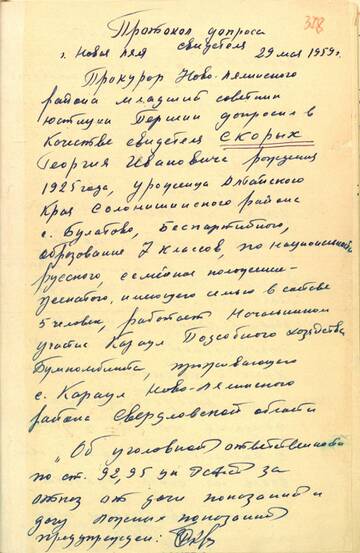 358
Протокол допроса
свидетеля
г. Новая ляля 29 мая 1959 г.
Прокурор Ново-лялинского
района младший советник
юстиции Першин допросил в
качестве свидетеля Скорых
Георгия Ивановича рождения
1925 года, уроженца Алтайского
края Солонешенского района
с. Булатово, беспартийного,
образование 7 классов, по национальности
русского, семейное положение-
женатого, имеющего семью в составе
5 человек, работает начальником
участка Караул Подсобного хозяйства
Бумкомбината, проживающего
с. Караул Ново-лялинского
района Свердловской области
"Об уголовной ответственности
по ст. 92, 95 ук РСФСР за
отказ от дачи показаний и
дачу ложных показаний
предупрежден: